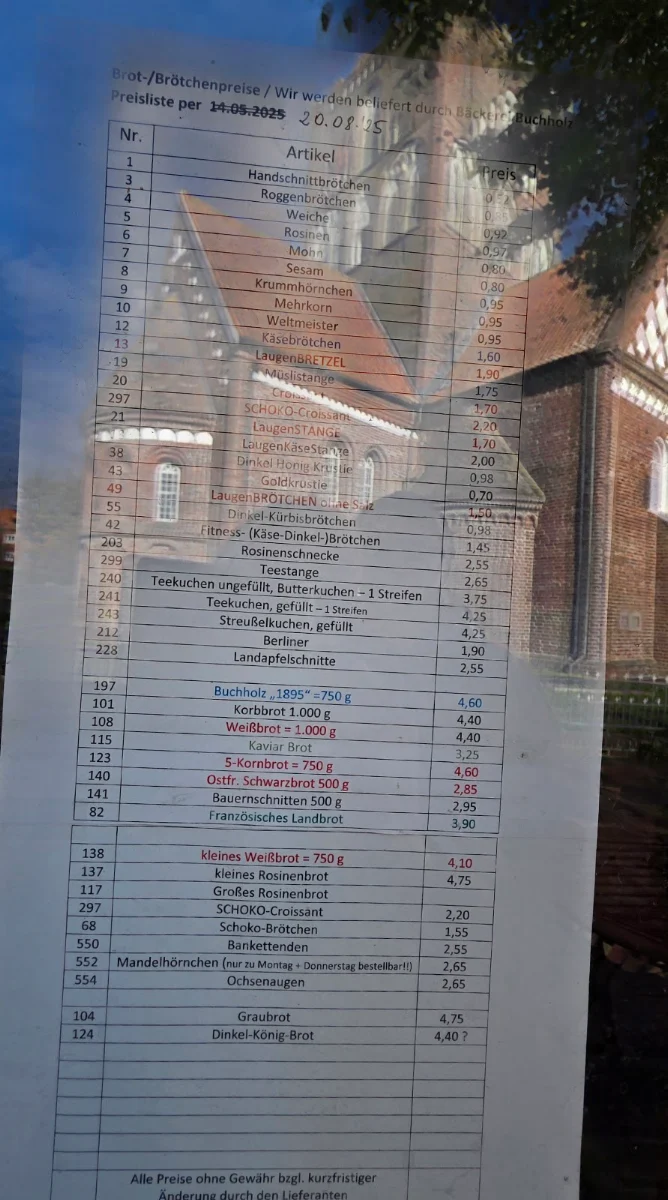 Brot-/Brötchenpreise / Wir werden beliefert durch Bäckerei Buchholz
Preisliste per 14.05.2025 20.08.25
Nr. Artikel Preis
1 Handschnittbrötchen
3 Roggenbrötchen
4 Weiche 0,92
5 Rosinen 0,97
6 Mohn 0,80
7 Sesam 0,80
8 Krummhörnchen 0,95
9 Mehrkorn 0,95
10 Weltmeister 0,95
12 Käsebrötchen 1,60
13 LaugenBRETZEL 1,90
19 Müslistange 1,75
20 1,70
297 SCHOKO-Croissant 2,20
21 LaugenSTANGE 1,70
LaugenKäseStange 2,00
38 Dinkel Honig Krustie 0,98
43 Goldkrustie 0,70
49 LaugenBRÖTCHEN ohne Salz 1,50
55 Dinkel-Kürbisbrötchen 0,98
42 Fitness- (Käse-Dinkel-)Brötchen 1,45
203 Rosinenschnecke 2,55
299 Teestange 2,65
240 Teekuchen ungefüllt, Butterkuchen – 1 Streifen 3,75
241 Teekuchen, gefüllt – 1 Streifen 4,25
243 Streußelkuchen, gefüllt 4,25
212 Berliner 1,90
228 Landapfelschnitte 2,55
197 Buchholz „1895“ =750 g 4,60
101 Korbbrot 1.000 g 4,40
108 Weißbrot = 1.000 g 4,40
115 Kaviar Brot 3,25
123 5-Kornbrot = 750 g 4,60
140 Ostfr. Schwarzbrot 500 g 2,85
141 Bauernschnitten 500 g 2,95
82 Französisches Landbrot 3,90
138 kleines Weißbrot = 750 g 4,10
137 kleines Rosinenbrot 4,75
117 Großes Rosinenbrot
297 SCHOKO-Croissant 2,20
68 Schoko-Brötchen 1,55
550 Bankettenden 2,55
552 Mandelhörnchen (nur zu Montag + Donnerstag bestellbar!!) 2,65
554 Ochsenaugen 2,65
104 Graubrot 4,75
124 Dinkel-König-Brot 4,40 ?
Alle Preise ohne Gewähr bzgl. kurzfristiger
Änderung durch den Lieferanten